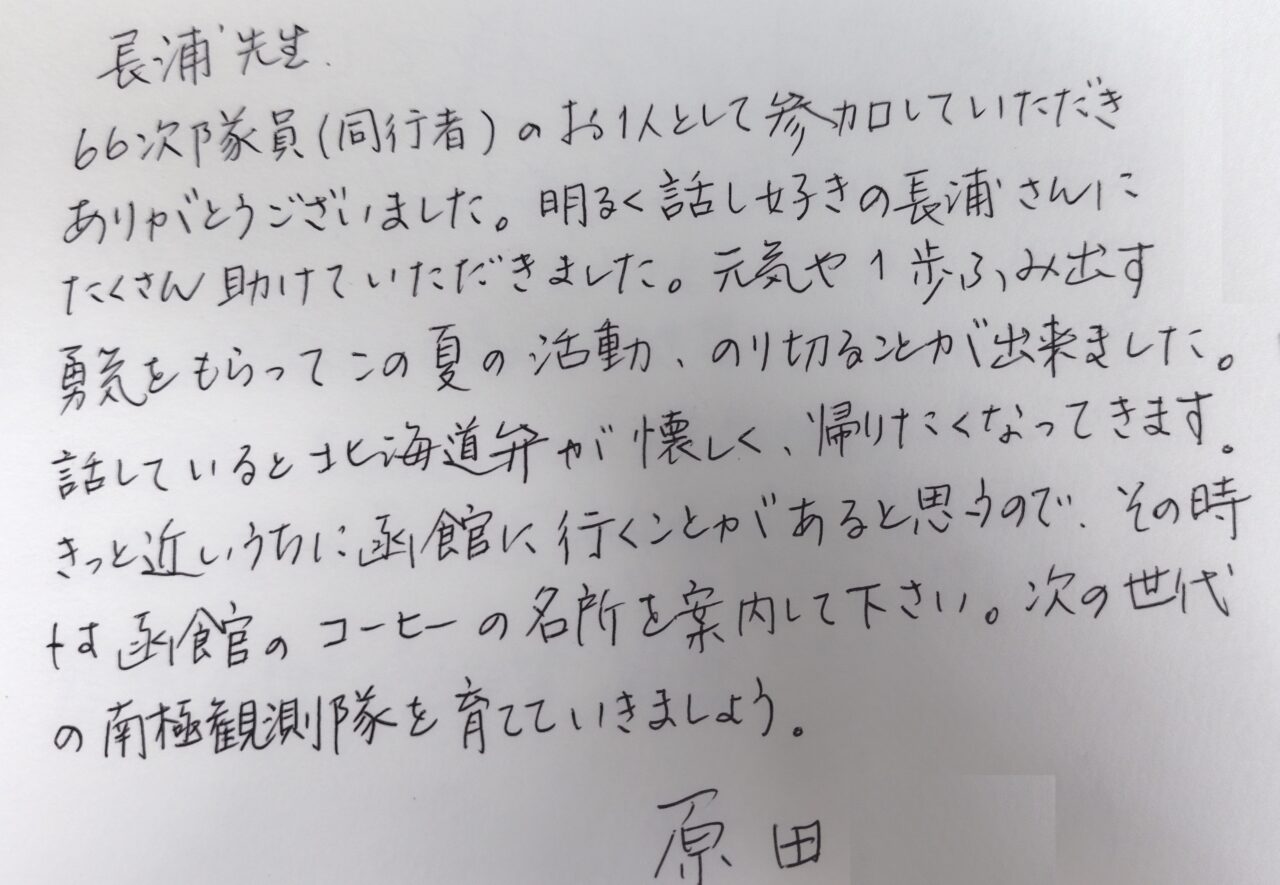 長浦先生
66次隊員(同行者)のお1人として参加していただき
ありがとうございました。明るく話し好きの長浦さんに
たくさん助けていただきました。元気や1歩ふみ出す
勇気をもらってこの夏の活動、のり切ることが出来ました。
話していると北海道弁が懐しく、帰りたくなってきます。
きっと近いうちに函館に行くことがあると思うので、その時
は函館のコーヒーの名所を案内して下さい。次の世代
の南極観測隊を育てていきましょう。
原田